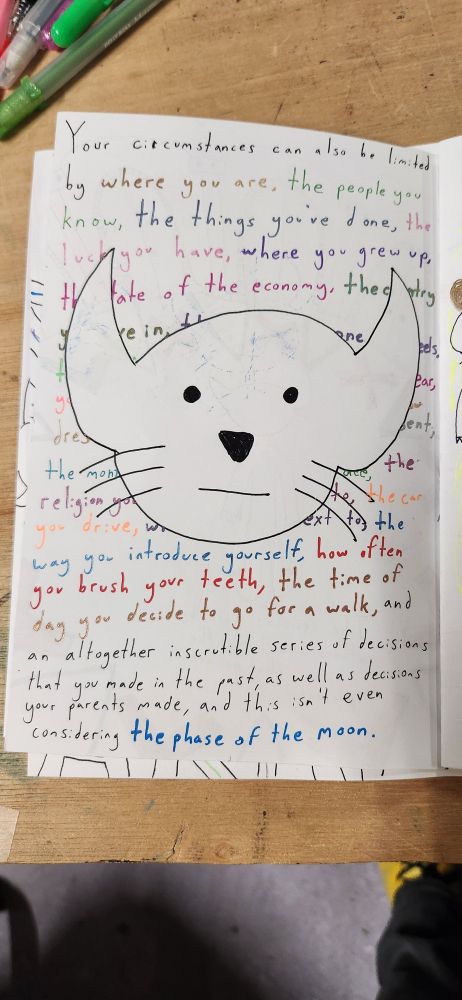 Your circumstances can also be limited
by where you are, the people you
know, the things you've done, the
luck you have, where you grew up,
ate of the economy, the
in,
the
religion
to, the car
you drive, ext to, the
way you introduce yourself, how often
you brush your teeth, the time of
day you decide to go for a walk, and
an altogether inscrutible series of decisions
that you made in the past, as well as decisions
your parents made, and this isn't even
considering the phase of the moon.